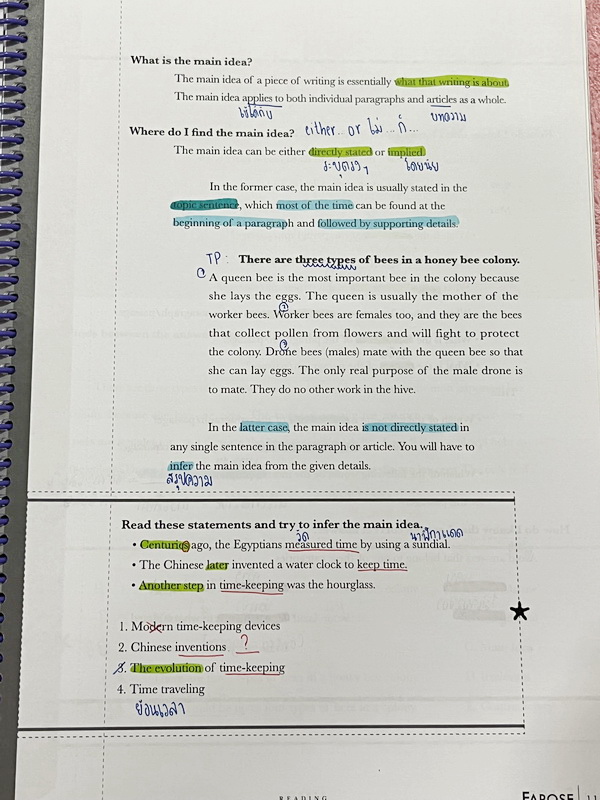 What is the main idea?
The main idea of a piece of writing is essentially what that writing is about.
The main idea applies to both individual paragraphs and articles as a whole.
ใช้ได้กับ บทความ
Where do I find the main idea? either.. or ไม่ ... ก็ ...
The main idea can be either directly stated or implied.
ระบุตรงๆ โดยนัย
In the former case, the main idea is usually stated in the
topic sentence, which most of the time can be found at the
beginning of a paragraph and followed by supporting details.
TP : There are three types of bees in a honey bee colony.
1 A queen bee is the most important bee in the colony because
she lays the eggs. The queen is usually the mother of the
2
worker bees. Worker bees are females too, and they are the bees
that collect pollen from flowers and will fight to protect
3
the colony. Drone bees (males) mate with the queen bee so that
she can lay eggs. The only real purpose of the male drone is
to mate. They do no other work in the hive.
In the latter case, the main idea is not directly stated in
any single sentence in the paragraph or article. You will have to
infer the main idea from the given details.
สรุปความ
Read these statements and try to infer the main idea.
วัด นาฬิกาแดด
• Centuries ago, the Egyptians measured time by using a sundial.
• The Chinese later invented a water clock to keep time.
• Another step in time-keeping was the hourglass.
1. Modern time-keeping devices
2. Chinese inventions ?
3. The evolution of time-keeping
4. Time traveling
ย้อนเวลา
READING FAROSE 11